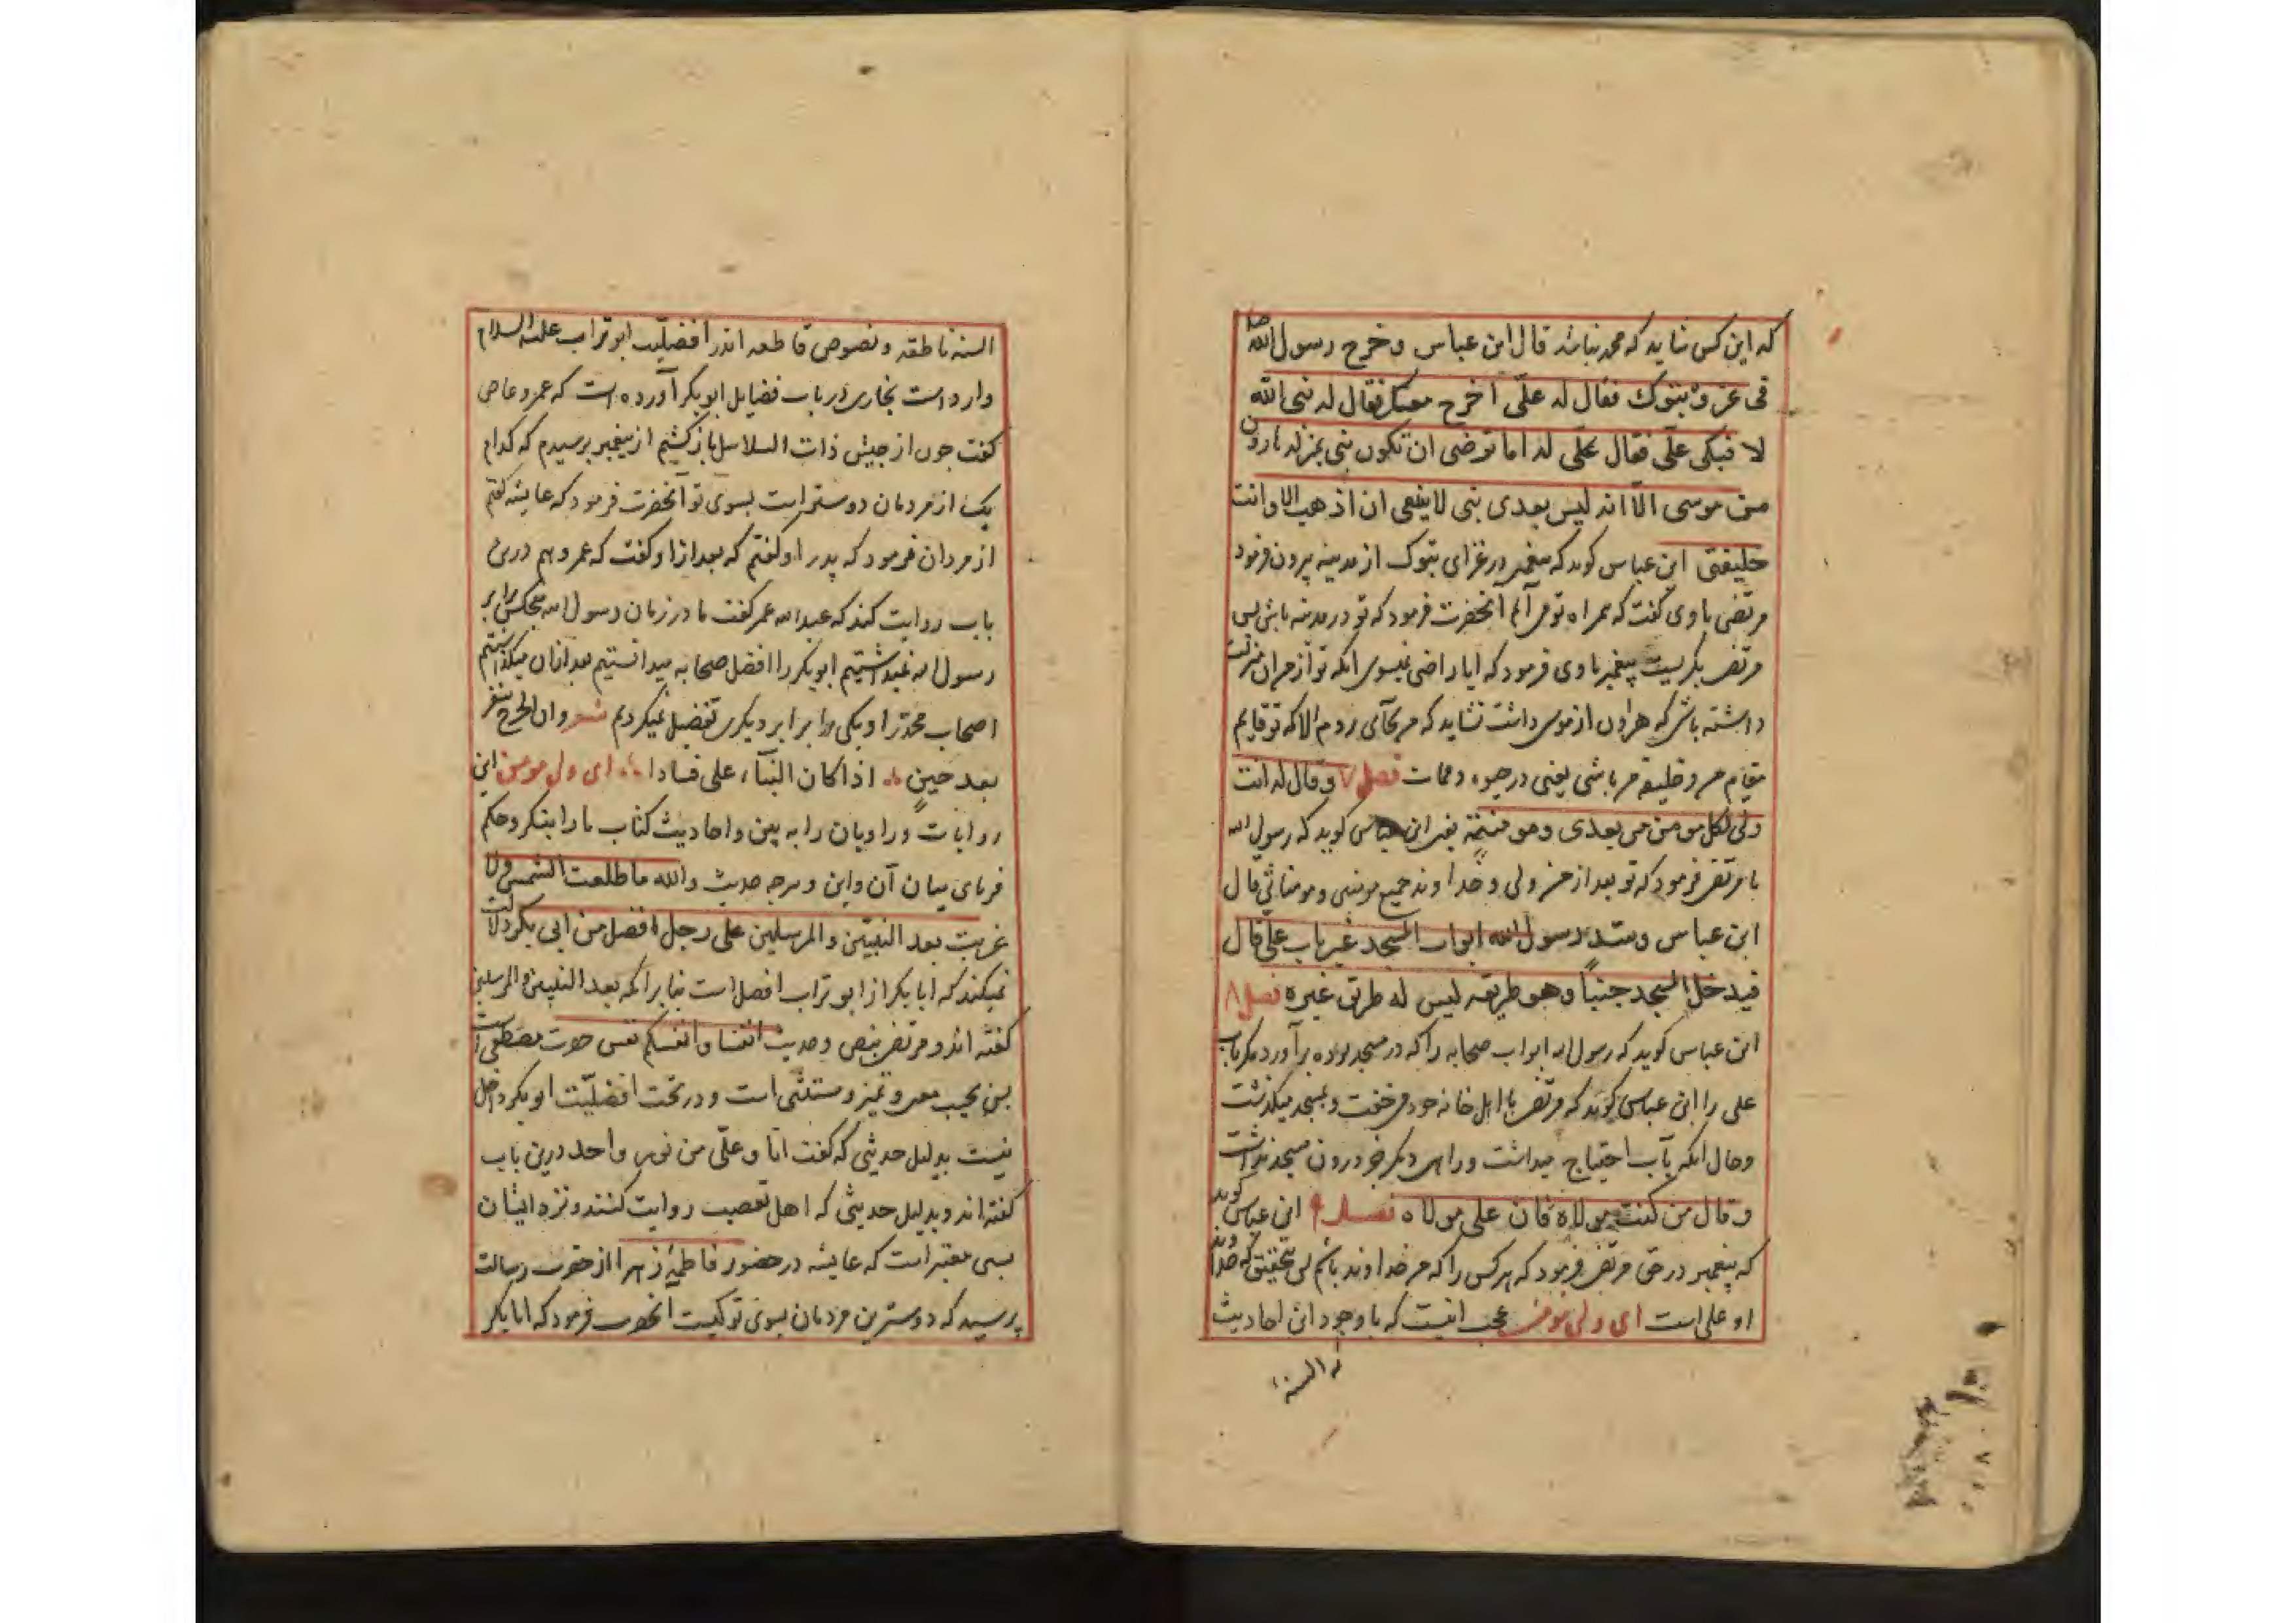 که این کس نشاید که محمد نباشد قال ابن عباس و خرج رسول الله صلعم
فی غزوة تبوک فقال له علی اخرج معک فقال له نبی الله
لا فبکی علی فقال علی له اما ترضی ان تکون منی بمنزله هارون
من موسی الا انه لیس بعدی نبی لا ینبغی ان اذهب الا و انت
خلیفتی ابن عباس کوید که پیغمبر در غزای تبوک از مدینه بیرون فرمود
مرتضی با وی کفت که همراه تو می آیم آنحضرت فرمود که تو در مدینه باش پس
مرتضی بکریست پیغمبر با وی فرمود که ایا راضی نیسوی انکه تو از من ان منزلت
داشته باشی که هرون از موسی داشت نشاید که من بجائی روم الا که تو قایم
مقام من و خلیفه من باشی یعنی در حیوه و ممات فصل ۷ و قال له انت
ولی لکل مومن من بعدی و مومنة یعنی ابن عباس کوید که رسول الله
با مرتضی فرمود که تو بعد از من ولی و خداوند جمیع مومنین و مومناتی قال
ابن عباس و سد رسول الله ابواب المسجد غیر باب علی قال
فیدخل المسجد جنبا و هو طریقه لیس له طریق غیره فصل ۸
ابن عباس کوید که رسول الله ابواب صحابه را که در مسجد بوده برآورد مکر باب
علی را ابن عباس کوید که مرتضی با اهل خانه خود می خفت و بمسجد میکذشت
و حال انکه بآب احتیاج میداشت و راهی دیکر جز درون مسجد نداشت
و قال من کنت مولاه فان علی مولاه فصل ۹ ابن عباس کوید
که پیغمبر در حق مرتضی فرمود که هر کس را که من خداوند باشم پس بتحقیق که خداوند
او علی است ای ولی مومن عجب اینست که با وجود این احادیث
که السنه
السنه ناطقه و نصوص قاطعه اندر افضلیت ابو تراب علیه السلام
وارد است بخاری در باب فضایل ابوبکر آورده است که عمرو عاص
کفت چون از جیش ذات السلاسل باز کشتیم از پیغمبر پرسیدم که کدام
یک از مردمان دوستر است بسوی تو آنحضرت فرمود که عایشه کفتم
از مردان فرمود که پدر او کفتم که بعد از او کفت که عمر و هم درین
باب روایت کند که عبد الله عمر کفت ما در زمان رسول الله هیچکس برابر
رسول الله نمیداشتیم ابوبکر را افضل صحابه میدانستیم بعد از ان میکذاشتیم
اصحاب محمد را و یکی را برابر دیکری تفضیل نمیکردیم شعر و ان الجرح ینفر
بعد حین اذا کان البناء علی فسادا ای ولی مومن این
روایات و راویان را به بین و احادیث کتاب ما را بنکر و حکم
فرمای میان آن و این و مرجه حدیث والله ما طلعت الشمس ولا
غربت بعد النبیین و المرسلین علی رجل افضل من ابی بکر دلالت
نمیکند که ابابکر از ابو تراب افضل است بنا برانکه بعد النبیین و المرسلین
کفته اند و مرتضی بنص و حدیث انفسنا و انفسکم نفس حضرت مصطفی است
پس بحیب معنی و تمیز و مستثنی است و در تحت افضلیت ابوبکر داخل
نیست بدلیل حدیثی که کفت انا و علی من نور واحد درین باب
کفته اند و بدلیل حدیثی که اهل تعصب روایت کنند و نزد ایشان
بسی معتبر است که عایشه در حضور فاطمه زهرا از حضرت رسالت
پرسید که دوسترین مردمان بسوی تو کیست آنحضرت فرمود که ابابکر